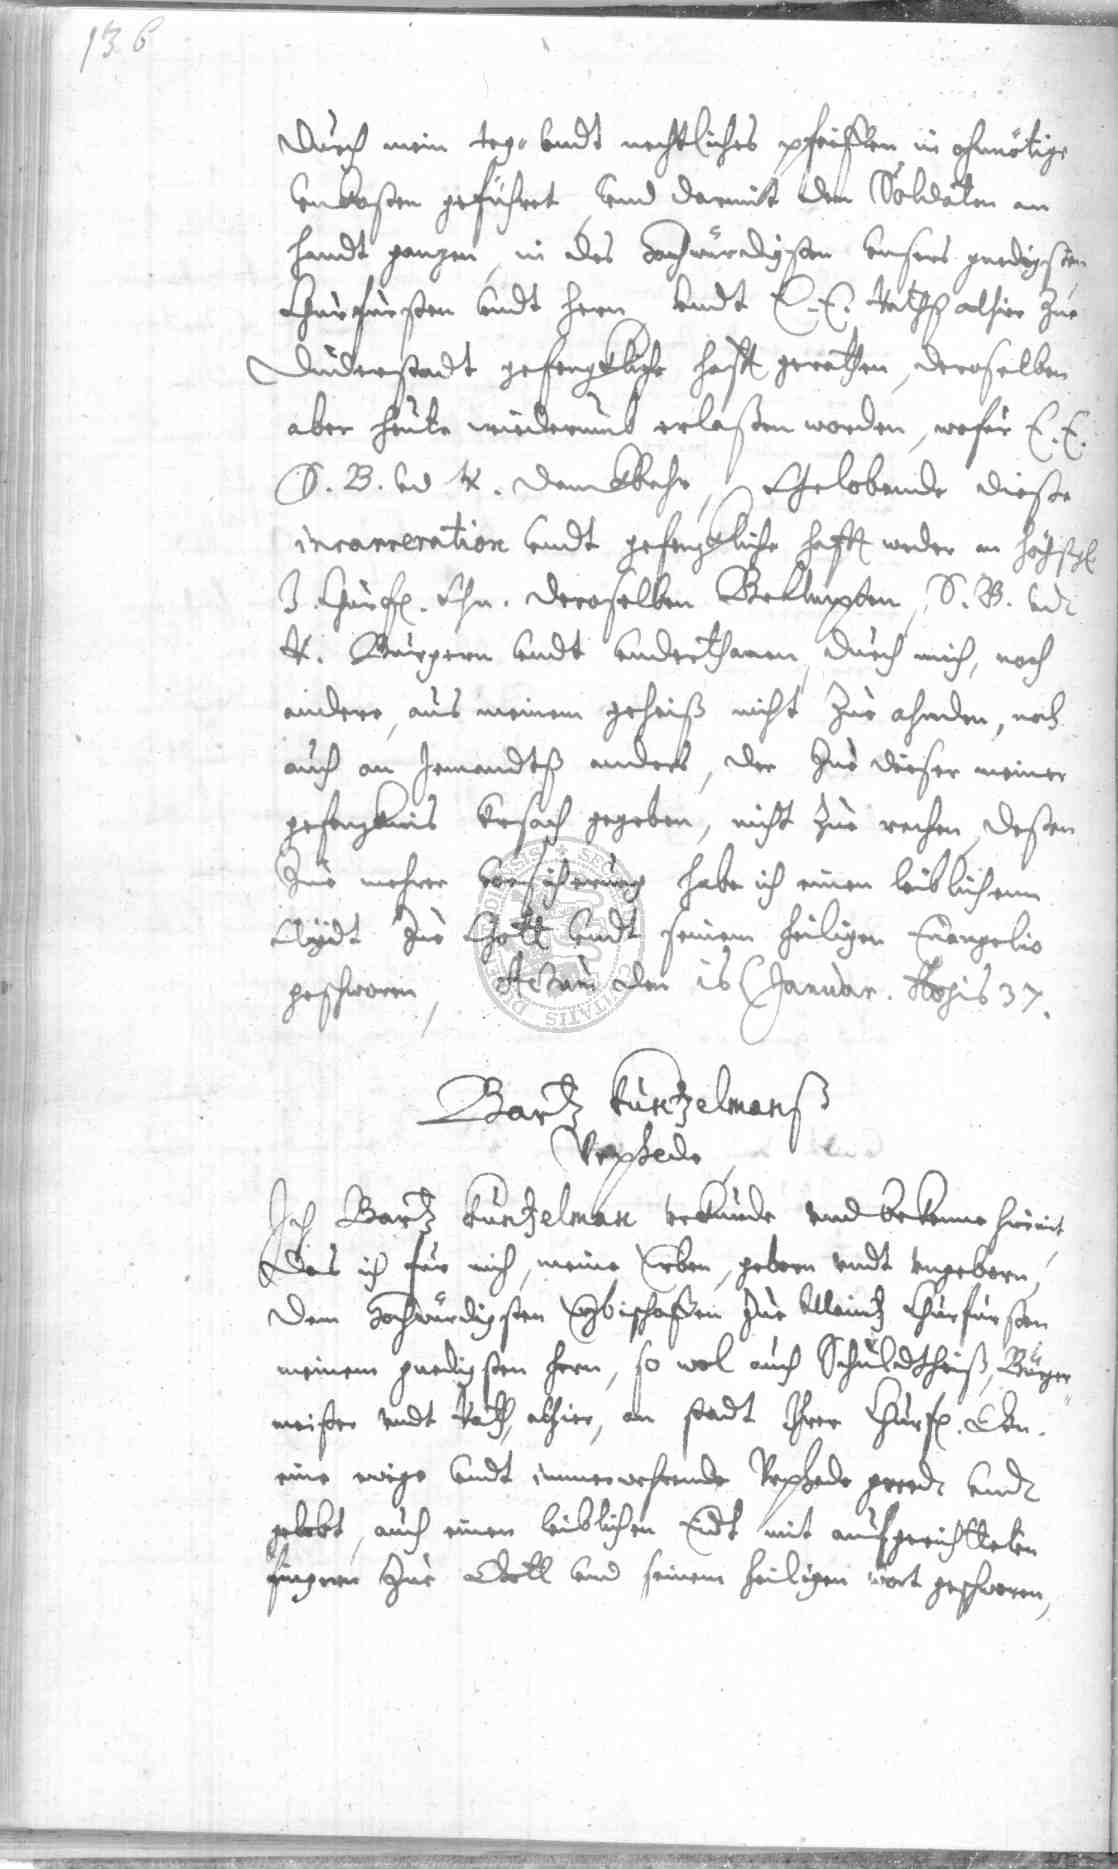 136
durch mein teg- undt nechtliches pfeiffen in ohnnötige
unkosten geführet, und darmit den Soldaten an
handt gangen, in des Hochwürdigsten unsers gnedigsten
Churfürsten undt hern undt E. E. Raths alhier zue
Duderstadt gefengkliche hafft gerathen, deroselben
aber heute wiederumb erlaßen worden, wofür E. E.
S. B. ud R. danckbahr, Gelobende dieße
incarceration undt gefengkliche hafft weder an höchstg.
I. Churf. Gn. deroselben Beampten, S. B. und
R. Bürgern undt underthanen durch mich, noch
andere, aus meinem geheiß nicht zue ahnden, noch
auch an Jemandtß anders, der zue dieser meiner
gefengknis ursach gegeben, nicht zue rechen, deßen
Zue mehrer versicherung habe ich einen leiblichenn
Eydt zue Gott undt seinem heiligen Evangelio
geschworen, Actum den 16 Januar. 37.
Bartz Kuntzelmanß
Urphede
Ich Bartz Kuntzelman urkunde und bekenne hiemit,
das ich für mich, meine Erben, geborn undt ungeborn,
dem Hochwürdigsten Ertzbischoffen zue Maintz Churfürsten
meinem gnedigsten hern, so wol auch Schuldtheiß, Bürger-
meister undt Rath, alhier, an stadt Ihrer Churf. Gn.
eine ewige undt immerwehrende Urphede geredt undt
gelobt, auch einen leiblichen Eidt mit aufgerichtteten
fingern zue Gott und seinem heiligen wort geschworen,